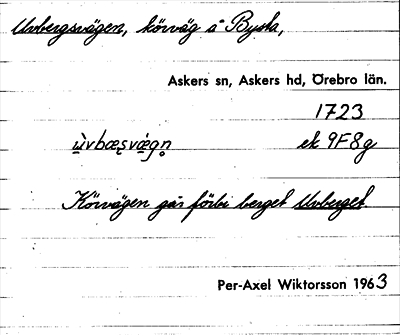 Uvbergsvägen, körväg å Byska,
Askers sn, Askers hd, Örebro län.
1723
ùvbæṣvæ̀gn̥ ek 9F8g
Körvägen går förbi berget Uvberget.
Per-Axel Wiktorsson 1963